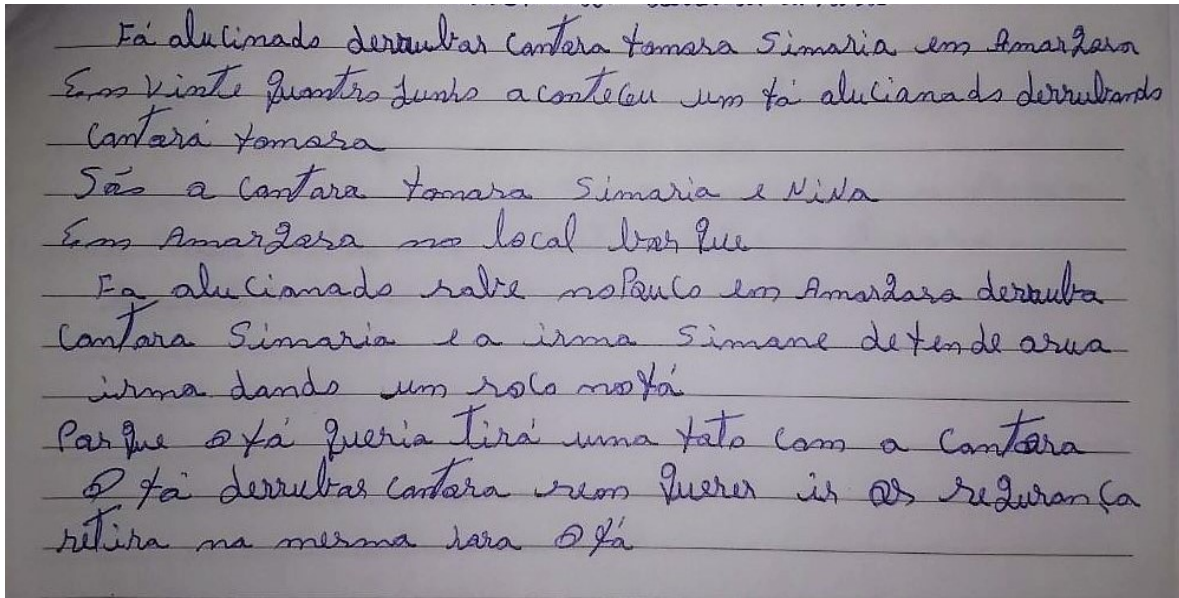 Fá alucinado derrubar cantora famosa Simaria em Amargosa
Em vinte quantro Junho aconteceu um fá alucianado derrubando
cantorá famosa
São a cantora famosa Simaria e NiNa
Em Amargosa no local bar que
Fa alucianado sobe no Pauco em Amargosa derruba
cantora Simaria e a irma Simane defende asua
irma dando um soco no fá
Por que o fá queria tirá uma foto com a cantora
O fá derrubar cantora sem querer ir os segurança
retira na mesma hora o fá